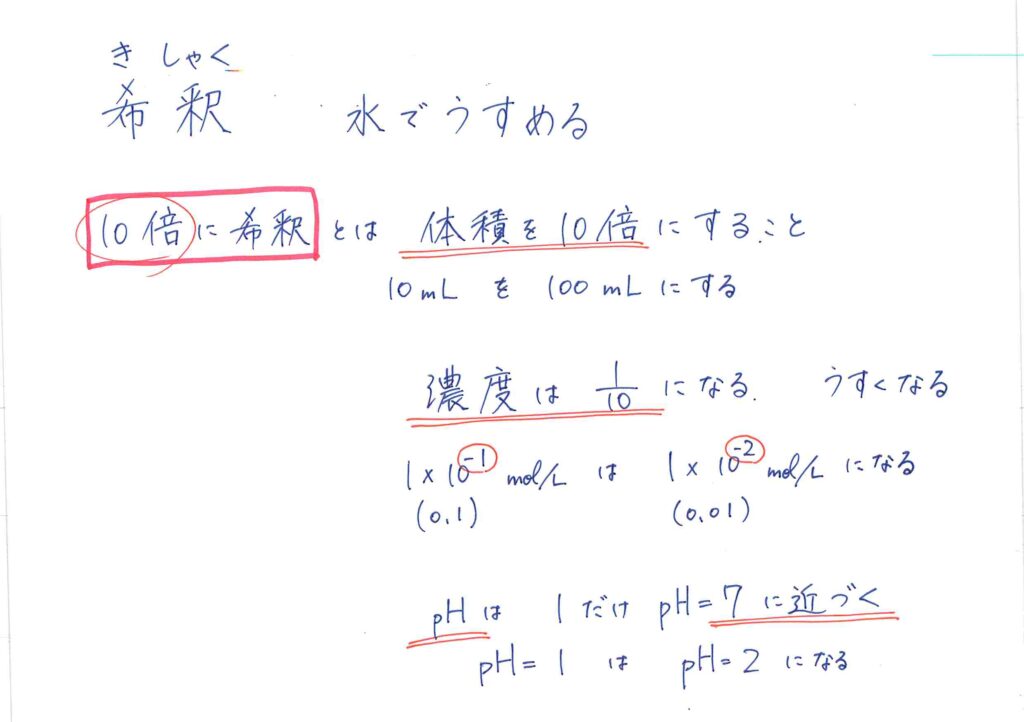 きしゃく
希釈　水でうすめる
10倍に希釈とは 体積を10倍にすること
10mL を 100mLにする
濃度は 1/10 になる. うすくなる
1×10⁻¹ mol/L は 1×10⁻² mol/L になる
(0.1) (0.01)
pHは 1だけ pH=7に近づく
pH=1 は pH=2 になる